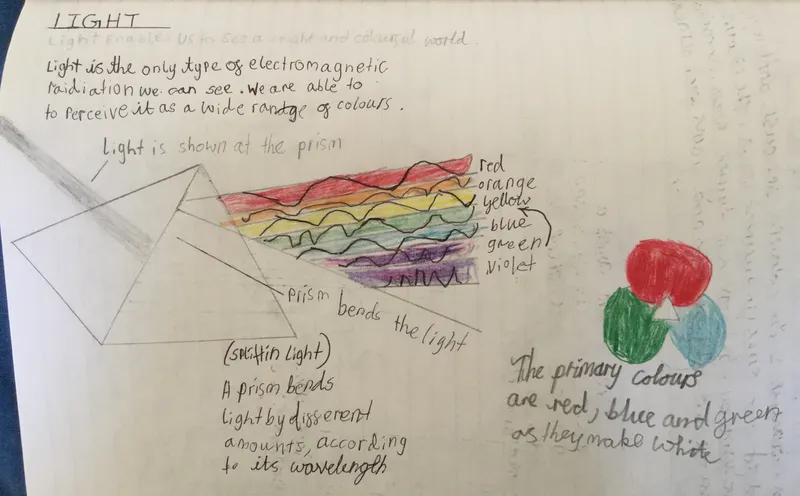 LIGHT
Light Enables Us to See a bright and colourful world.
Light is the only type of electromagnetic
raidiation we can see. We are able to
to perceive it as a wide randge of colours.
Light is shown at the prism
red
orange
yellow
blue
green
violet
prism bends the light
(splittin Light)
A prism bends
light by different
amounts, according
to its wavelength
The primary colours
are red, blue and green
as they make white